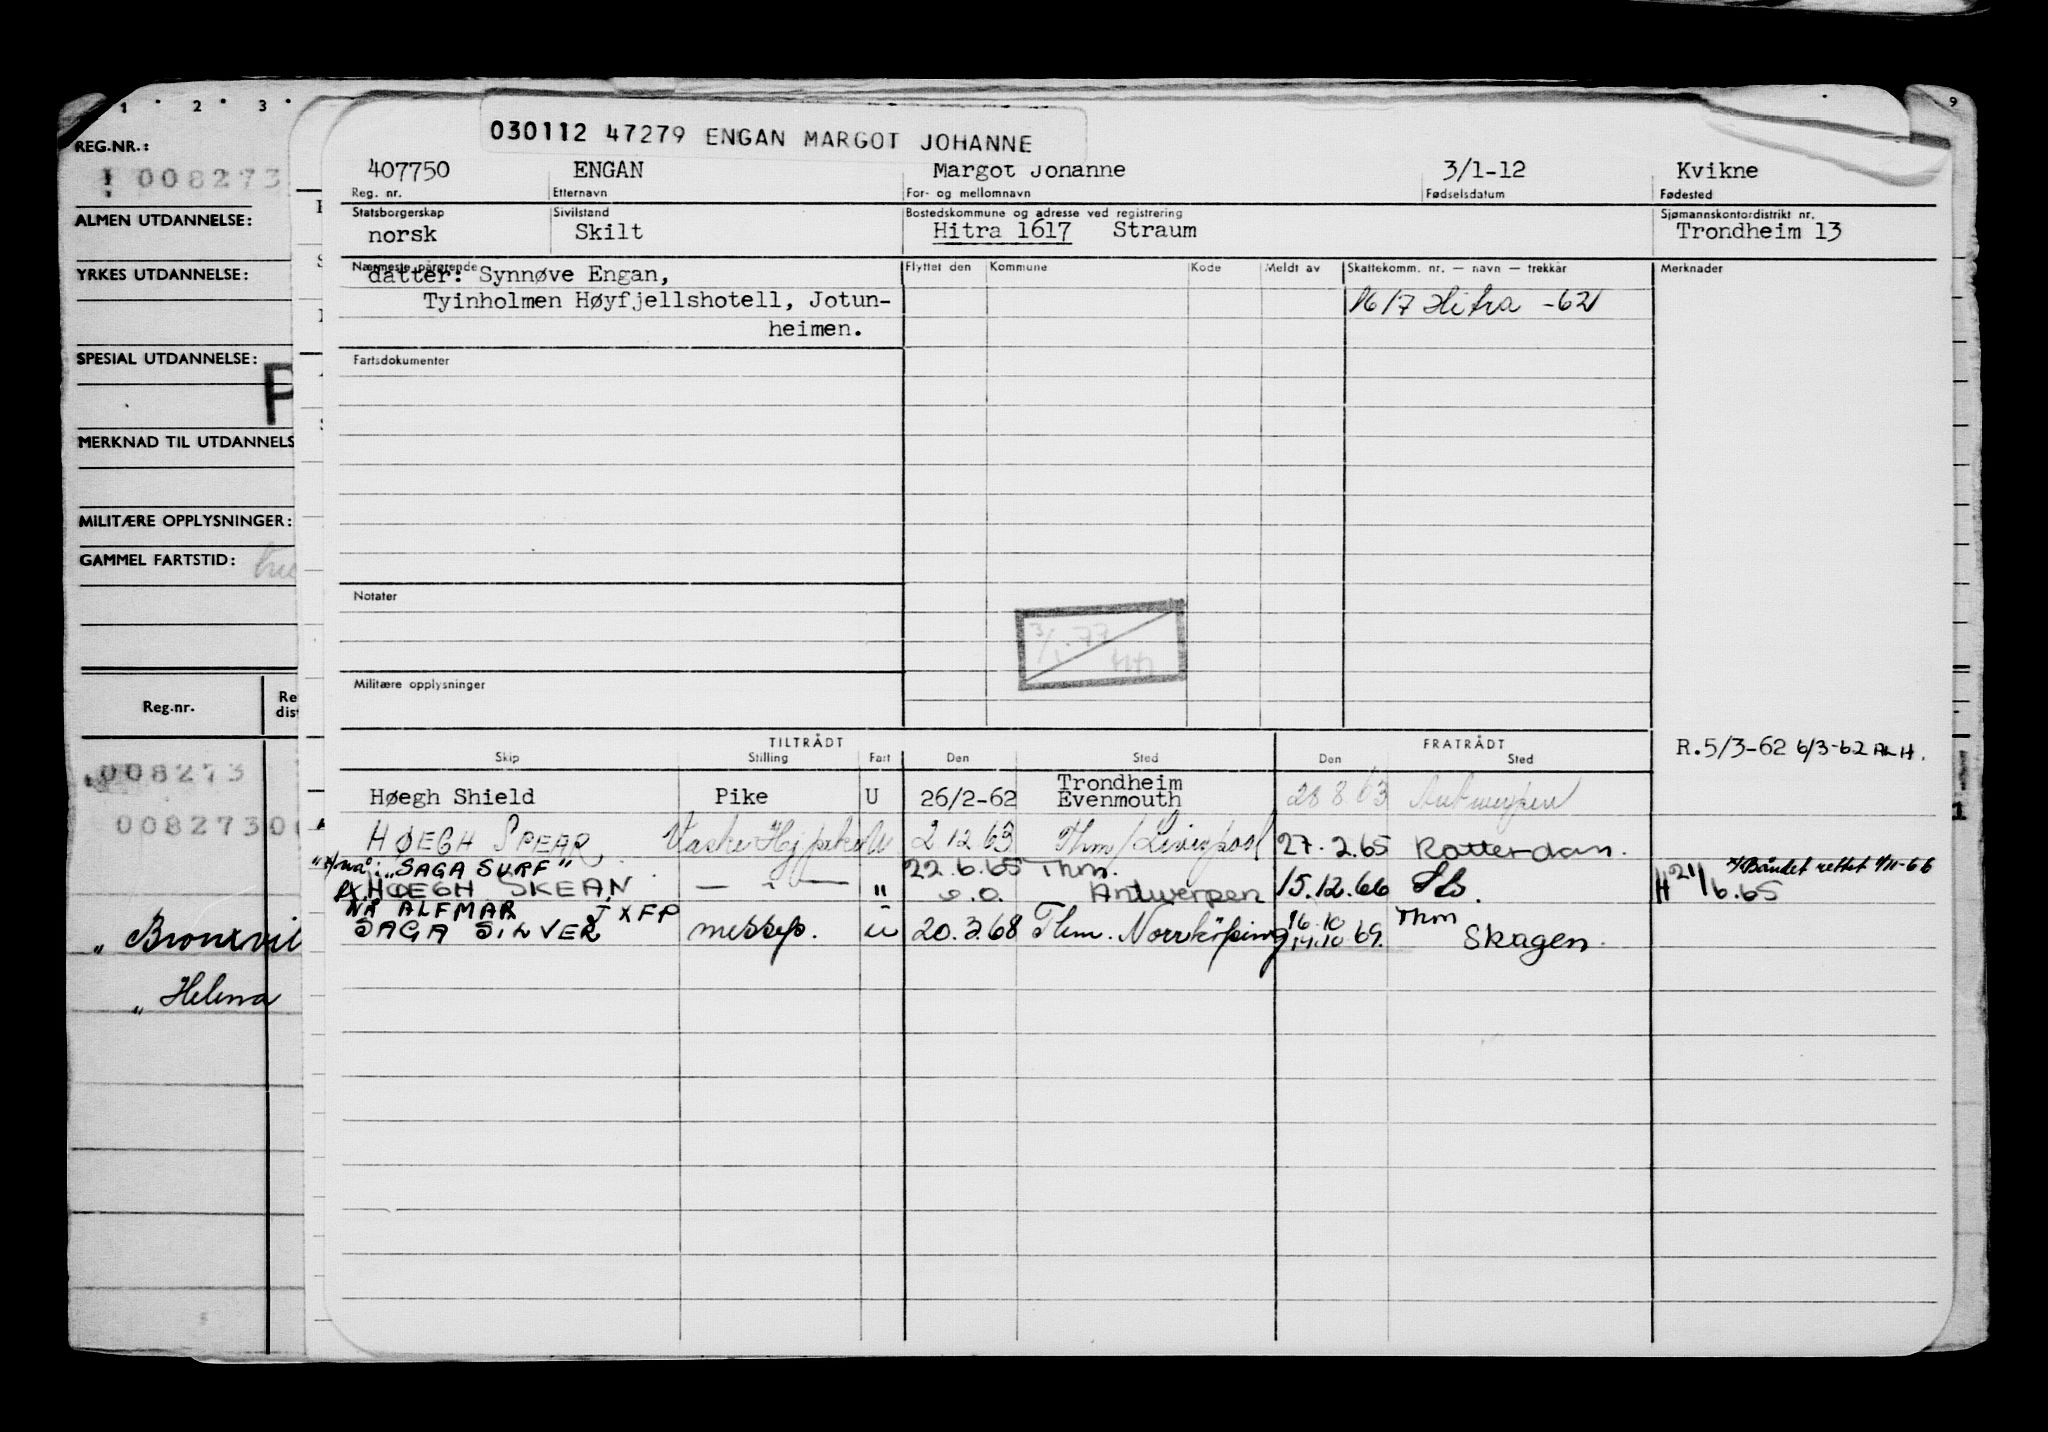 1 2 3 9
030112 47279 ENGAN MARGOT JOHANNE
REG.NR.:
008273
407750 ENGAN Margot Johanne 3/1-12 Kvikne
Reg. nr. Etternavn For- og mellomnavn Fødselsdatum Fødested
ALMEN UTDANNELSE:
Statsborgerskap Sivilstand Bostedskommune og adresse ved registrering Sjømannskontordistrikt nr.
norsk Skilt Hitra 1617 Straum Trondheim 13
YRKES UTDANNELSE:
Nærmeste pårørende Flyttet den Kommune Kode Meldt av Skattekomm. nr. — navn — trekkår Merknader
datter: Synnøve Engan,
Tyinholmen Høyfjellshotell, Jotun- 1617 Hitra -62
heimen.
SPESIAL UTDANNELSE:
Fartsdokumenter
P
MERKNAD TIL UTDANNELS
MILITÆRE OPPLYSNINGER:
GAMMEL FARTSTID:
Notater
3/1-77
Militære opplysninger
Reg.nr. Re
dist
TILTRÅDT FRATRÅDT
Skip Stilling Fart Den Sted Den Sted
R.5/3-62 6/3-62 ALH.
008273
Høegh Shield Pike U 26/2-62 Trondheim
Evenmouth 28 8 63 Antwerpen
008273
HØEGH SPEAR U 2 12 63 Thm/Liverpool 27.2.65 Rotterdam.
"SAGA SURF" 22.6.65 Thm. Båndet rettet
HØEGH SKEAN — " — " s.d. Antwerpen 15.12.66 21/6.65
NÅ ALFMAR JXFP
SAGA SILVER messep. u 20.3.68 Thm. Norrköping 16.10
14.10 69. Thm Skagen.
" Bronxvil
" Helena